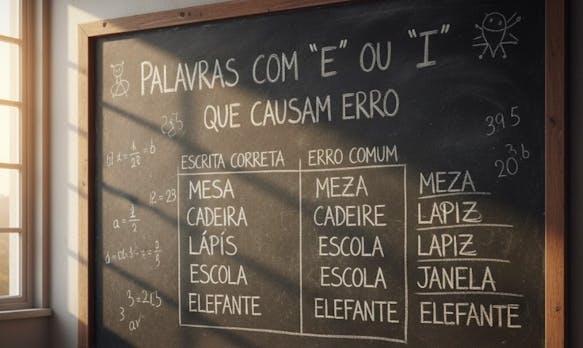 PALAVRAS COM "E" OU "I"
QUE CAUSAM ERRO
ESCRITA CORRETA ERRO COMUM
MESA MEZA MEZA
CADEIRA CADEIRE LAPIZ
LÁPÍS ESCOLA LAPIZ
ESCOLA ESCOLA JANELA
ELEFANTE ELEFANTE ELEFANTE
395